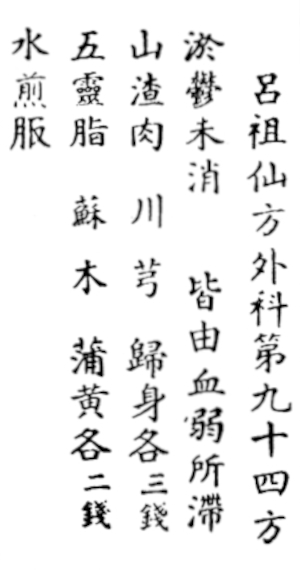 呂祖仙方外科第九十四方
淤鬱未消 皆由血弱所滯
山渣肉 川芎 歸身各三錢
五靈脂 蘇木 蒲黃各二錢
水煎服